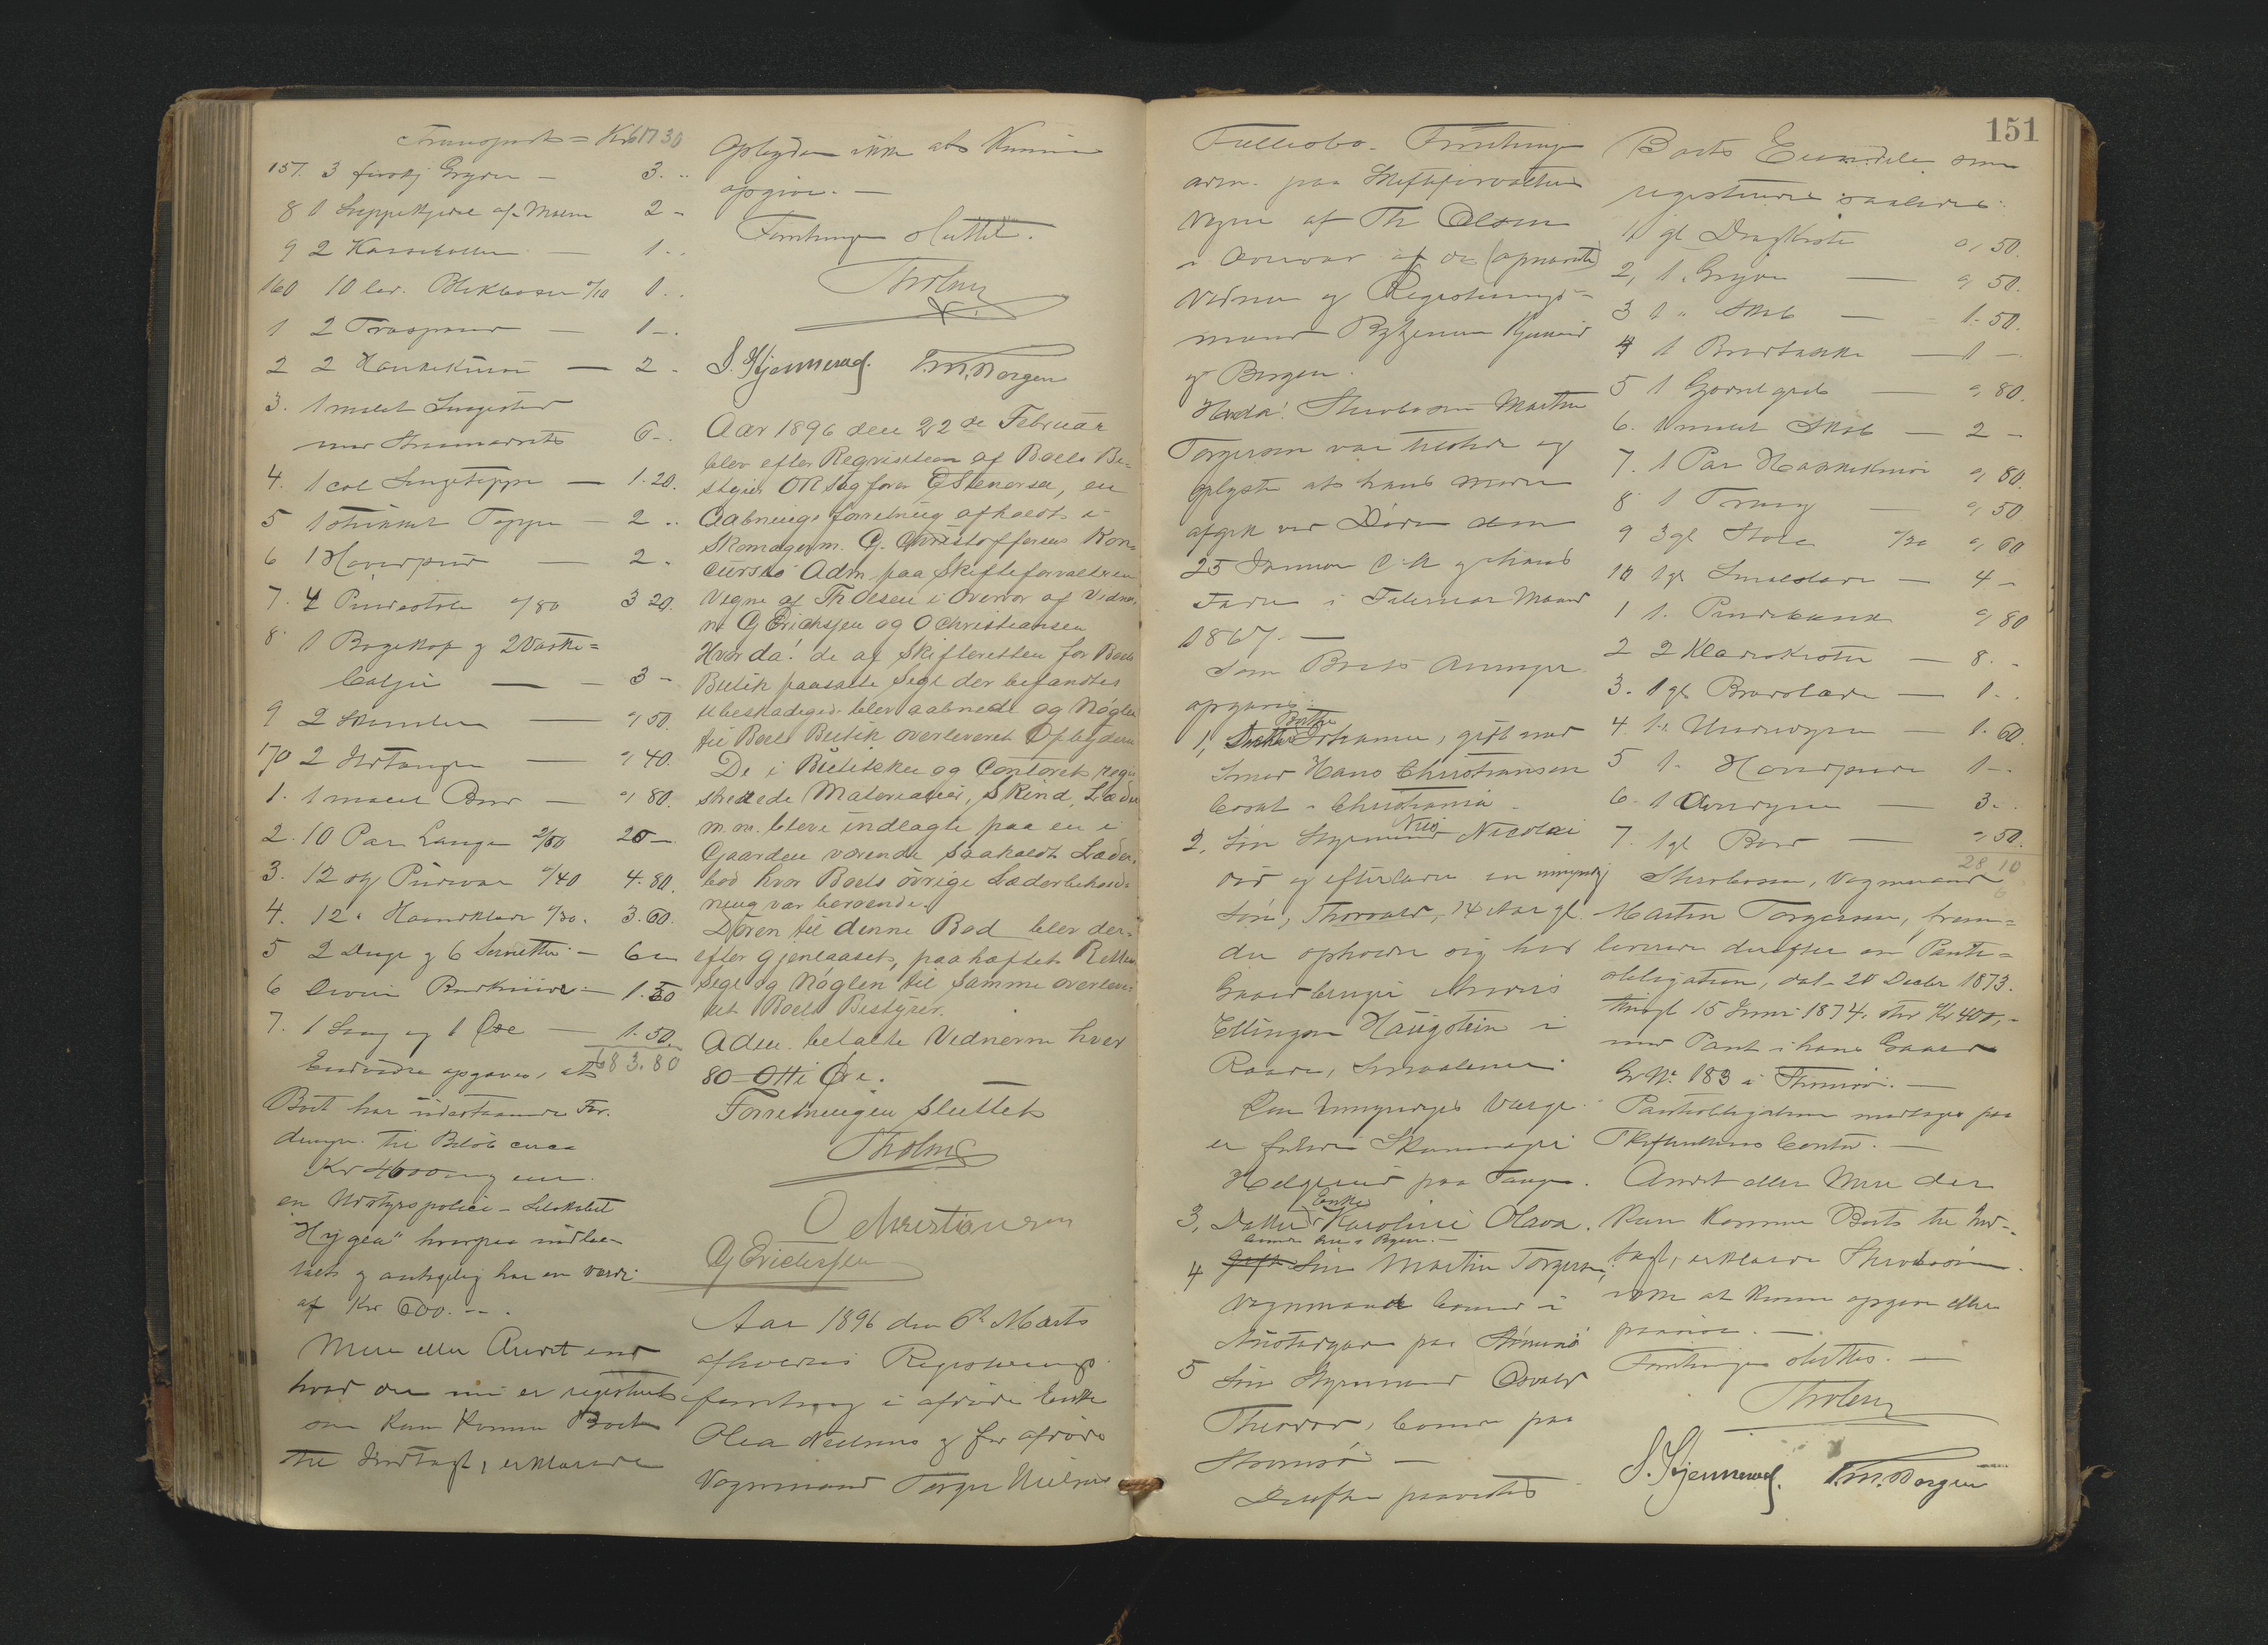 Transport = Kr 617 30
157. 3 forskj Gryder — 3. "
8 1 Suppekjedel af Malm 2 -
9 2 Kasseroller — 1 . .
160 10 lav. Blikboser 1 . .
1 2 Traspand — 1 - .
2 2 — 2 -
3. 1 malet Sengested
med 6 - .
4. 1 col Sengeteppe — 1. 20.
5 1 strikket Teppe — 2 ..
6 1 Hovedpude — 2 -
7. 4 Pindestole a/80 3 20.
8 1 og 2 Vaske=
— 3 -
9 2 — " 50.
170 2 Ildtænger — " 40.
1. 1 malet Bord — " 80.
2. 10 Par Lagen 2/50 25 —
3. 12 Pudevar "/40 4. 80.
4. 12 " Haandklæder "/30. 3. 60.
5 2 Duge og 6 Servietter — 6 -
6 — 1. 50
7. 1 Sag og 1 Øxe — 1. 50.
683. 80
Endvidere opgaves, at
Boet har udestaaende For-
dringer til Beløb circa
Kr 4600 og en
en Udstyrspolice - Selskabet
"Hygea" hvorpaa indbe-
talt og antagelig har en Værdi
af Kr 600. - - .
Mere eller Andet end
hvad der nu er registreret
som kan komme Boet
til Indtægt, erklærede
Opbyderen ikke at kunne
opgive. —
Forretningen sluttet.
ThOlsen
S. Kjennerud. T. M. Borgen
Aar 1896 den 22de Februar
blev efter Reqvisition af Boets Be-
styrer OR Sagfører E Stenersen, en
Aabnings forretning afholdt i
Skomagerm. G. Christoffersens Kon-
cursbo Adm. paa Skifteforvalteren
Vegne af Th Olsen i Overvær af Vidner-
ne G Erichsen og O Christiansen
Hvorda! de af Skifteretten for Boets
Butik paasatte Segl der befandtes
ubeskadiget blev aabnede og Nøglen
til Boets Butik overleveret Opbyderen
De i Butikken og Contoret regi-
strerede Materialier, Skind, Læder
m. m. bleve indlagte paa en i
Gaarden værende saakaldt Læder-
bod hvor Boets øvrige Læderbehold-
ning var beroende.
Døren til denne Bod blev der-
efter gjenlaaset, paahæftet Rettens
Segl og Nøglen til samme overleve-
ret Boets Bestyrer.
Adm. betalte Vidnerne hver
80 - Otti Øre.
Forretningen sluttet
ThOlsen
O Christiansen
G Erichsen
Aar 1896 den 6te Marts
afholdtes Registrerings-
forretning i afdøde Enke
Olea Nielsens og før afdøde
Vognmand Torger Nielsens
151
Fællesbo. Forretningen
adm. paa Skifteforvalterens
Vegne af Th Olsen
i Overvær af de opnævnte
Vidner og Registrerings-
mænd Kjennerud
og Borgen.
Hvorda! Stervbosøn Martin
Torgersen var tilstede og
oplyste at hans Moder
afgik ved Døden den
25 Januar d. A og hans
Fader i Februar Maaned
1867. —
Som Boets Arvinger
opgaves:
1, Datter Johanne, gift med
Smed Hans Christiansen
boende i Christiania
2, Søn Styrmand Nils Nicolai
død og efterlader en umyndig
Søn, Thorvald, 14 Aar gl.
der opholder sig hos
Gaardbruger
Ellingsen Haugstein i
Raade, Smaalenene
Den Umyndiges Værge
er Skomager
Helgerud paa Tangen.
3, Datter Enke Karoline Olava.
boende her i Byen. -
4 Søn Martin Torgersen,
Vognmand boende i
paa Strømsø
5 Søn Styrmand Oswald
Theodor, boende paa
Strømsø —
Derefter paavistes
Boets Eiendele som
registreredes saaledes:
1 1 gl Dragkiste " 50.
2, 1 " Gryde — " 50.
3 1 " Skab — 1. 50.
4 1 — 1 —
5 1 — " 80.
6. 1 malet Skab — 2 -
7. 1 Par " 80.
8 1 — " 50
9 3 gl Stole "/20 " 60
10 1 gl — 4 -
1 1. Pindebænk " 80
2 2 Klædeskister — 8. -
3. 1 gl — 1. .
4. 1 " Underdyne — 1. 60.
5 1 " Hovedpude 1 - .
6. 1 Overdyne — 3. .
7. 1 gl Bord — " 50.
28 10
Stervbosøn, Vognmand
Martin Torgersen, frem=
leverede derefter en Pante=
obligation, dat. 20 Decbr 1873.
thinglt 15 Juni 1874. stor Kr 400,-
med Pant i hans Gaard
Gr No. 183 i Strømsø. —
Pantobligationen modtages paa
Skifterettens Contor. —
Andet eller Mere der
kan komme Boet til Ind-
tægt, erklærede Stervbosønnen
ikke at kunne opgive eller
paavise. —
Forretningen sluttes. —
ThOlsen
S. Kjennerud. T. M. Borgen